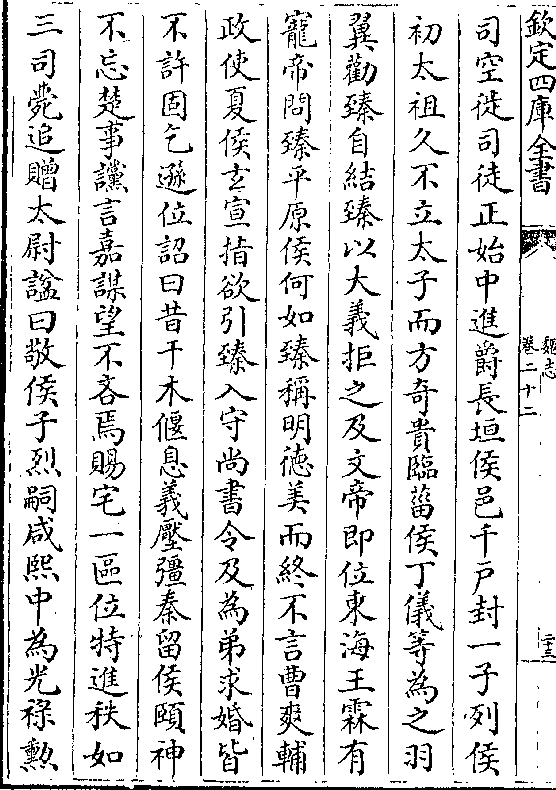 欽定四庫全書
魏志
卷二十二
二十三
司空徙司徒正始中進爵長垣侯邑千戶封一子列侯
初太祖久不立太子而方奇貴臨菑侯丁儀等為之羽
翼勸臻自結臻以大義拒之及文帝即位東海王霖有
寵帝問臻平原侯何如臻稱明德美而終不言曹爽輔
政使夏侯玄宣指欲引臻入守尚書令及為弟求婚皆
不許固乞遜位詔曰昔干木偃息義壓彊秦留侯頤神
不忘楚事讜言嘉謀望不吝焉賜宅一區位特進秩如
三司薨追贈太尉諡曰敬侯子烈嗣咸熙中為光祿勲